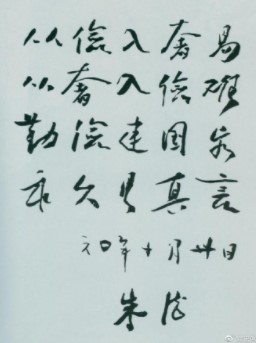 从俭入奢易
从奢入俭难
勤俭建国家
永久是真言
六〇年十月 日
朱德